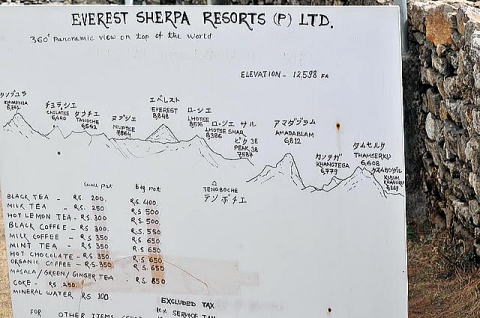 EVEREST SHERPA RESORTS (P) LTD.
360° panoramic view on top of the world
ELEVATION - 12,598
チョラツェ
CHOLATSE
タウチェ
TAUCHE
ヌプツェ
NUPTSE
7864
エベレスト
EVEREST
8848
ローツェ
LHOTSE
ローツェ サル
LHOTSE SHAR
8386
ピク 38
PEAK 38
7587
アマダブラム
AMADABLAM
6812
カンテガ
KHANGTEGA
6,779
タムセルク
THAMSERKU
6,608
TENGBOCHE
テンボチェ
big pot
BLACK TEA - RS 200. RS 400.
MILK TEA - RS. 250 RS 500
HOT LEMON TEA - RS. 300 RS 500.
BLACK COFFEE - RS. 300 RS 500.
MILK COFFEE - RS 350 RS 650
MINT TEA - RS 350 RS 650
HOT CHOCOLATE - RS 350 RS 650
ORGANIC COFFEE - RS 350 RS 650
MASALA/GREEN/GINGER TEA - RS 850
COKE - RS 250
MINERAL WATER RS 100
EXCLUDED TAX
10% SERVICE TAX
FOR OTHER ITEMS